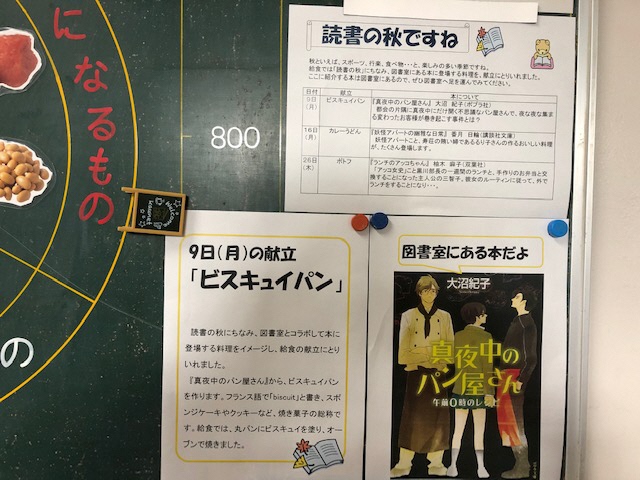 になるもの
の
800
読書の秋ですね
秋といえば、スポーツ、行楽、食べ物・・・と、楽しみの多い季節ですね。
給食では「読書の秋」にちなみ、図書室にある本に登場する料理を、献立にとりいれました。
ここに紹介する本は図書室にあるので、ぜひ図書室へ足を運んでみてください。
日付 献立 本について
(月) ビスキュイパン 『真夜中のパン屋さん』 大沼 紀子(ポプラ社)
都会の片隅に真夜中にだけ開く不思議なパン屋さんで、夜な夜な集まる変わったお客様が巻き起こす事件とは?
16日(月) カレーうどん 『妖怪アパートの幽雅な日常』 香月 日輪(講談社文庫)
妖怪アパートこと、寿荘の賄い婦であるるり子さんの作るおいしい料理が、たくさん登場します。
26日(木) ポトフ 『ランチのアッコちゃん』 柚木 麻子(双葉社)
「アッコ女史」こと黒川部長の一週間のランチと、手作りのお弁当と交換することになった主人公の三智子。彼女のルーティンに従って、外でランチをすることになり・・・。
9日(月)の献立
「ビスキュイパン」
読書の秋にちなみ、図書室とコラボして本に
登場する料理をイメージし、給食の献立にとり
いれました。
『真夜中のパン屋さん』から、ビスキュイパン
を作ります。フランス語で「biscuit」と書き、スポ
ンジケーキやクッキーなど、焼き菓子の総称で
す。給食では、丸パンにビスキュイを塗り、オー
ブンで焼きました。
図書室にある本だよ
大沼紀子
真夜中の
パン屋さん
午前0時のレシピ